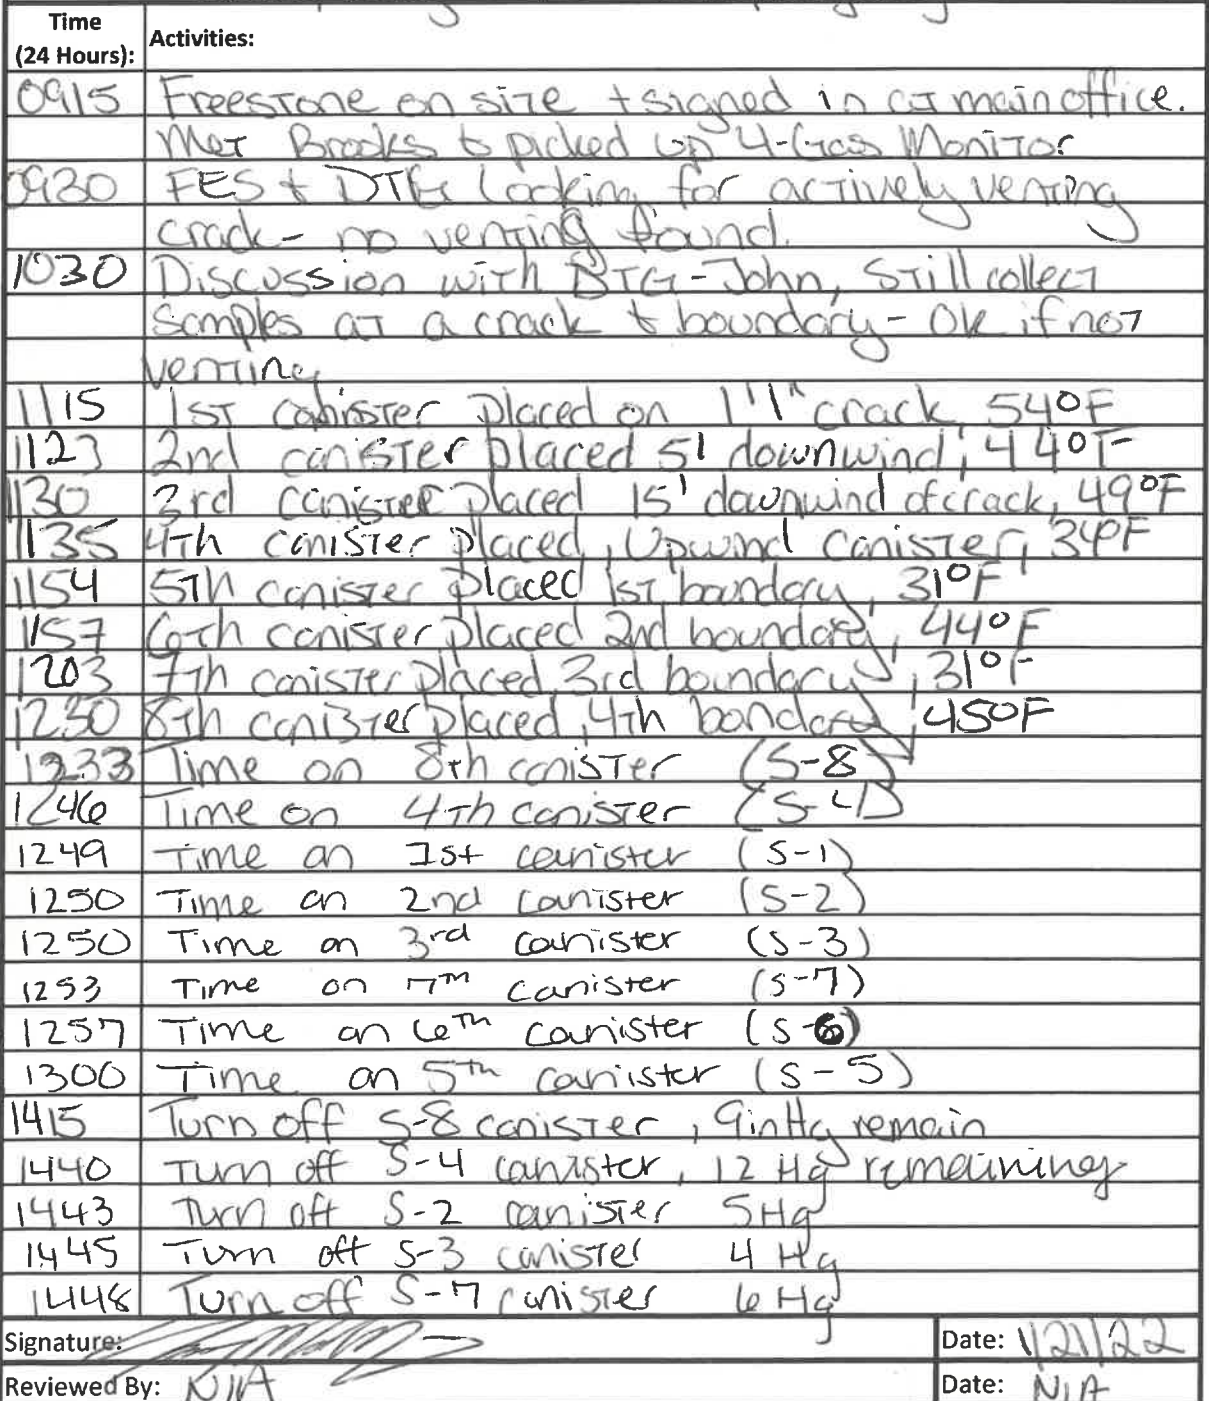 Time
(24 Hours):
Activities:
0915 Freestone on site + signed in at main office.
Met Brooks & picked up 4-Gas Monitor
0930 FES + DTG Looking for actively venting
crack - no venting found.
1030 Discussion with DTG - John, Still collect
samples at a crack & boundary - Ok if not
venting
1115 1st canister placed on crack, 54°F
1123 2nd canister placed 5' downwind, 44°F
1130 3rd canister placed 15' downwind of crack, 49°F
1135 4th canister placed, Upwind canister, 34°F
1154 5th canister placed 1st boundary, 31°F
1157 6th canister placed 2nd boundary, 44°F
1203 7th canister placed, 3rd boundary, 31°F
1230 8th canister placed, 4th bondary, 45°F
1233 Time on 8th canister (S-8)
1246 Time on 4th canister (S-4)
1249 Time on 1st canister (S-1)
1250 Time on 2nd canister (S-2)
1250 Time on 3rd canister (S-3)
1253 Time on 7th canister (S-7)
1257 Time on 6th canister (S-6)
1300 Time on 5th canister (S-5)
1415 Turn off S-8 canister, 9inHg remain
1440 Turn off S-4 canister, 12 Hg remaining
1443 Turn off S-2 canister 5Hg
1445 Turn off S-3 canister 4 Hg
1448 Turn off S-7 canister 6 Hg
Signature: Date: 1/21/22
Reviewed By: N/A Date: N/A